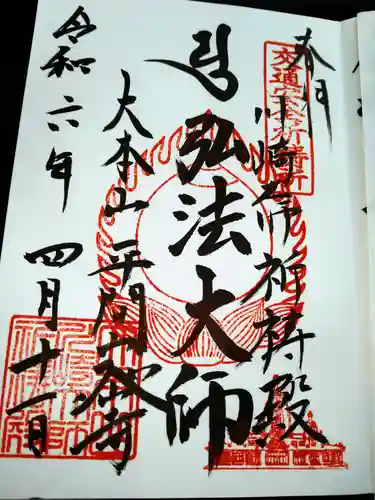 奉拝
交通安全祈祷所
川崎大師祈祷殿
弘法大師
大本山平間寺
令和六年四月十一日